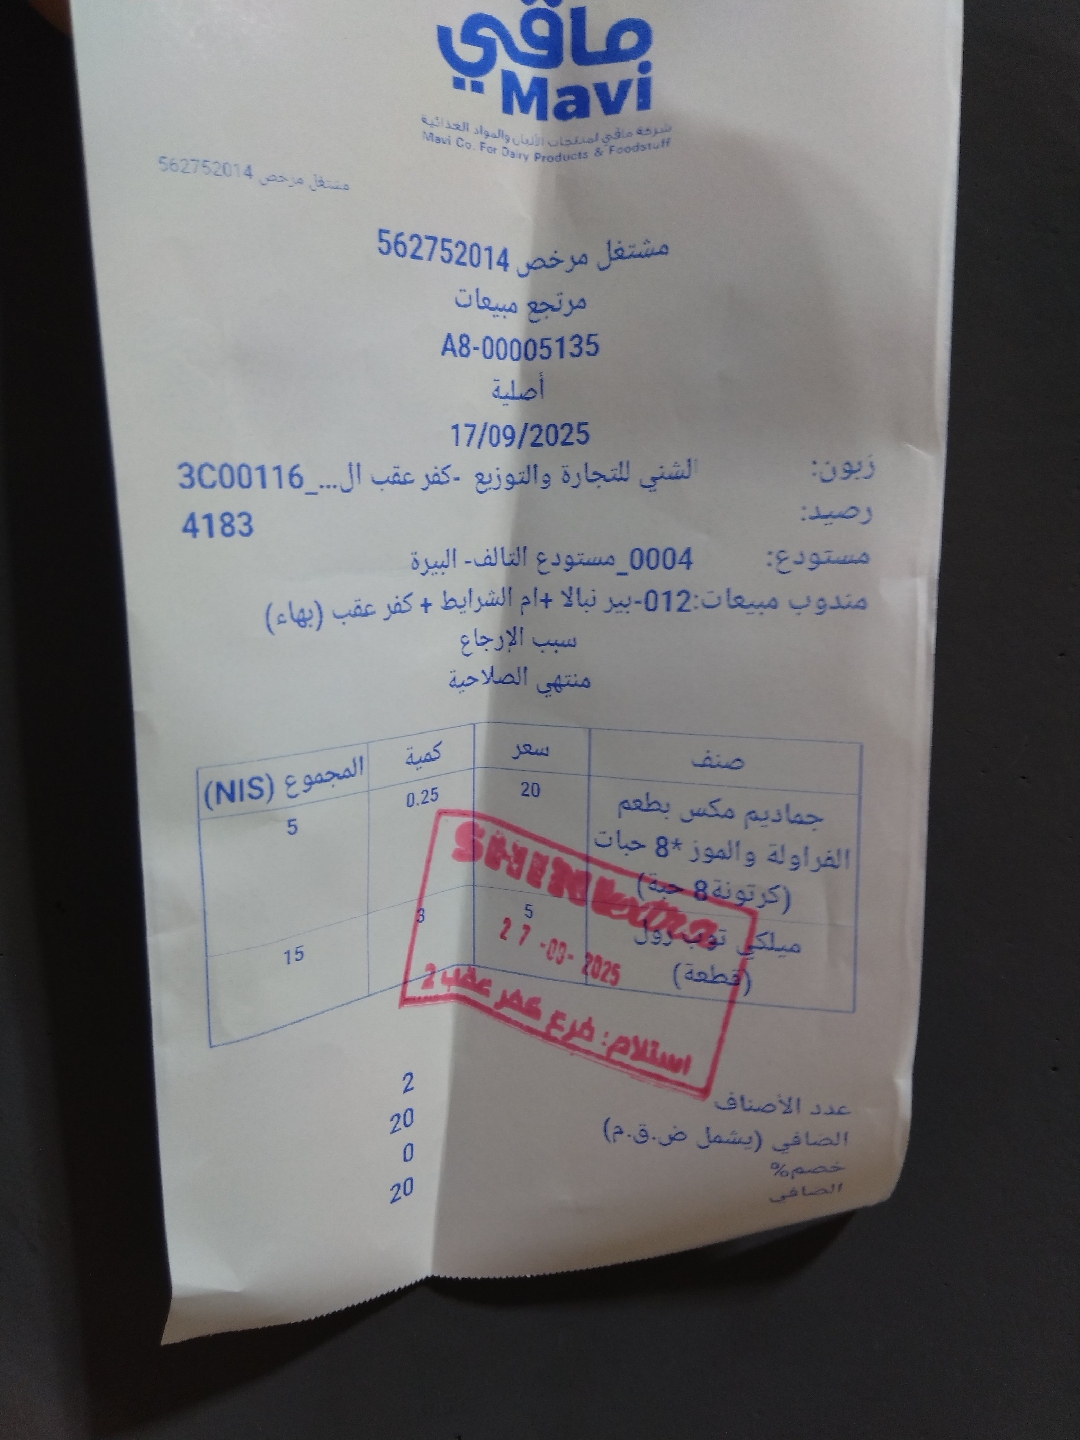 مافي
Mavi
شركة مافي لمنتجات الألبان والمواد الغذائية
Mavi Co. For Dairy Products & Foodstuff
مشتغل مرخص 562752014
مشتغل مرخص 562752014
مرتجع مبيعات
A8-00005135
أصلية
17/09/2025
زبون: الشني للتجارة والتوزيع -كفر عقب ال..._3C00116
رصيد: 4183
مستودع: 0004_مستودع التالف- البيرة
مندوب مبيعات:012-بير نبالا +ام الشرايط + كفر عقب (بهاء)
سبب الإرجاع
منتهي الصلاحية
صنف سعر كمية المجموع (NIS)
جماديم مكس بطعم 20 0.25 5
الفراولة والموز *8 حبات
(كرتونة8 حبة)
ميلكي توب رول 5 3 15
(قطعة)
extra
2025
استلام: فرع كفر عقب 2
عدد الأصناف 2
الصافي (يشمل ض.ق.م) 20
خصم% 0
الصافي 20